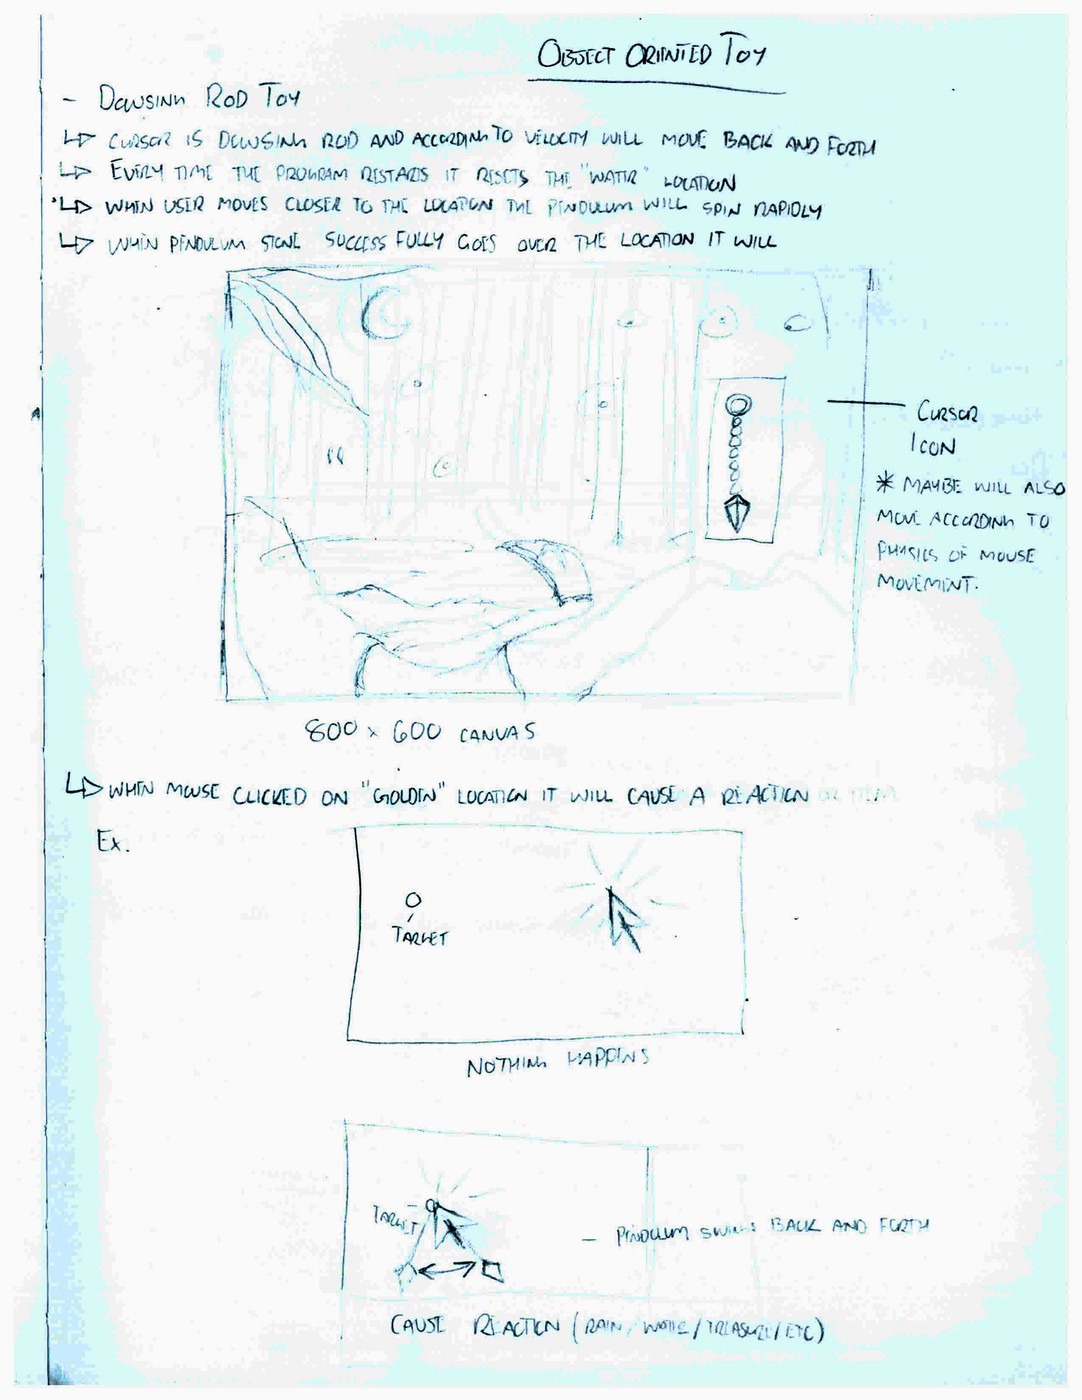 OBJECT ORIENTED TOY
- DOWSING ROD TOY
↳ CURSOR IS DOWSING ROD AND ACCORDING TO VELOCITY WILL MOVE BACK AND FORTH
↳ EVERY TIME THE PROGRAM RESTARTS IT RESETS THE "WATER" LOCATION
↳ WHEN USER MOVES CLOSER TO THE LOCATION THE PENDULUM WILL SPIN RAPIDLY
↳ WHEN PENDULUM STONE SUCCESSFULLY GOES OVER THE LOCATION IT WILL
CURSOR
ICON
* MAYBE WILL ALSO
MOVE ACCORDING TO
PHYSICS OF MOUSE
MOVEMENT.
800 x 600 CANVAS
↳ WHEN MOUSE CLICKED ON "GOLDEN" LOCATION IT WILL CAUSE A REACTION OR ITEM
Ex.
TARGET
NOTHING HAPPENS
TARGET
- PENDULUM SWINGS BACK AND FORTH
CAUSE REACTION (RAIN/WATER/TREASURE/ETC)